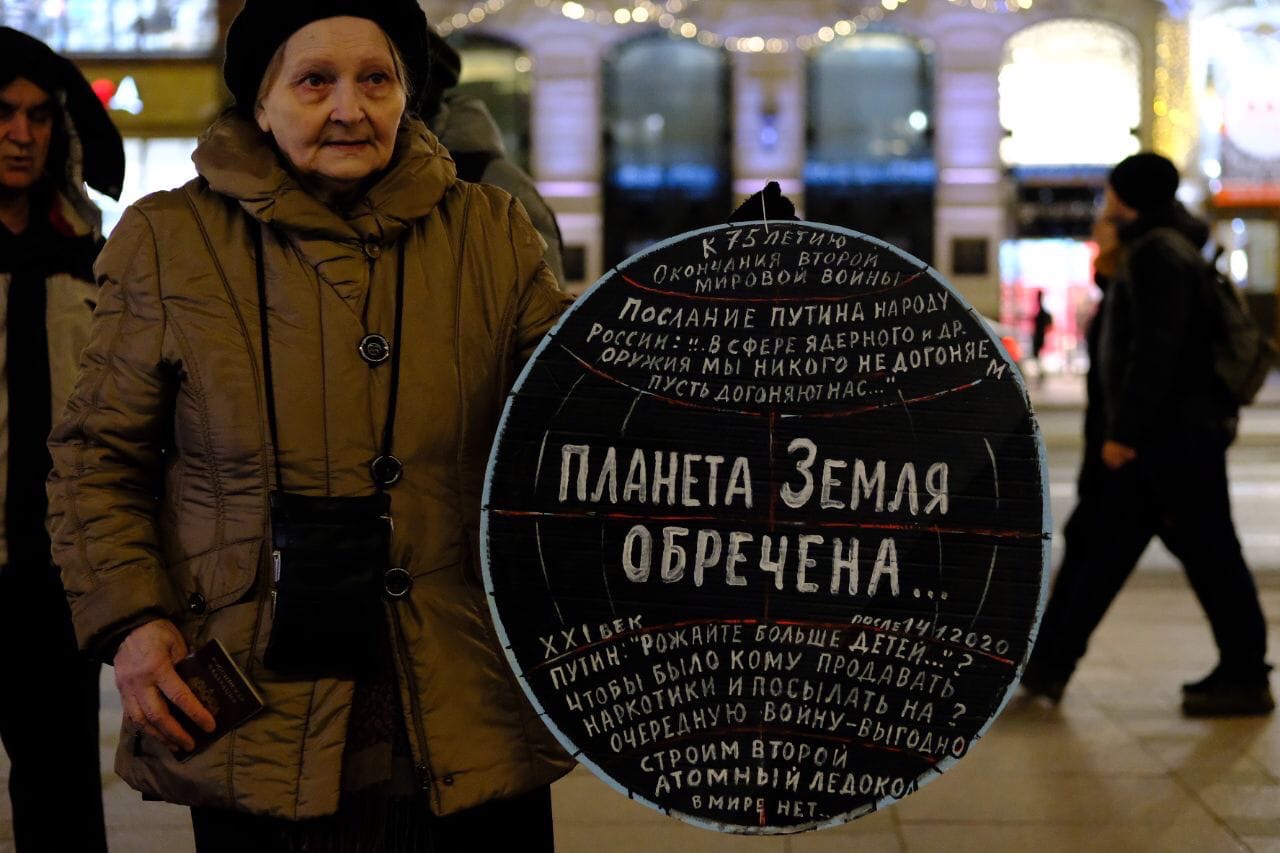 К 75 ЛЕТИЮ
ОКОНЧАНИЯ ВТОРОЙ
МИРОВОЙ ВОЙНЫ
ПОСЛАНИЕ ПУТИНА НАРОДУ
РОССИИ: "..В СФЕРЕ ЯДЕРНОГО И ДР.
ОРУЖИЯ МЫ НИКОГО НЕ ДОГОНЯЕМ
ПУСТЬ ДОГОНЯЮТ НАС..."
ПЛАНЕТА ЗЕМЛЯ
ОБРЕЧЕНА...
XXI ВЕК ПОСЛЕ 14.1.2020
ПУТИН: "РОЖАЙТЕ БОЛЬШЕ ДЕТЕЙ..."?
ЧТОБЫ БЫЛО КОМУ ПРОДАВАТЬ
НАРКОТИКИ И ПОСЫЛАТЬ НА ?
ОЧЕРЕДНУЮ ВОЙНУ-ВЫГОДНО
СТРОИМ ВТОРОЙ
АТОМНЫЙ ЛЕДОКОЛ
В МИРЕ НЕТ..